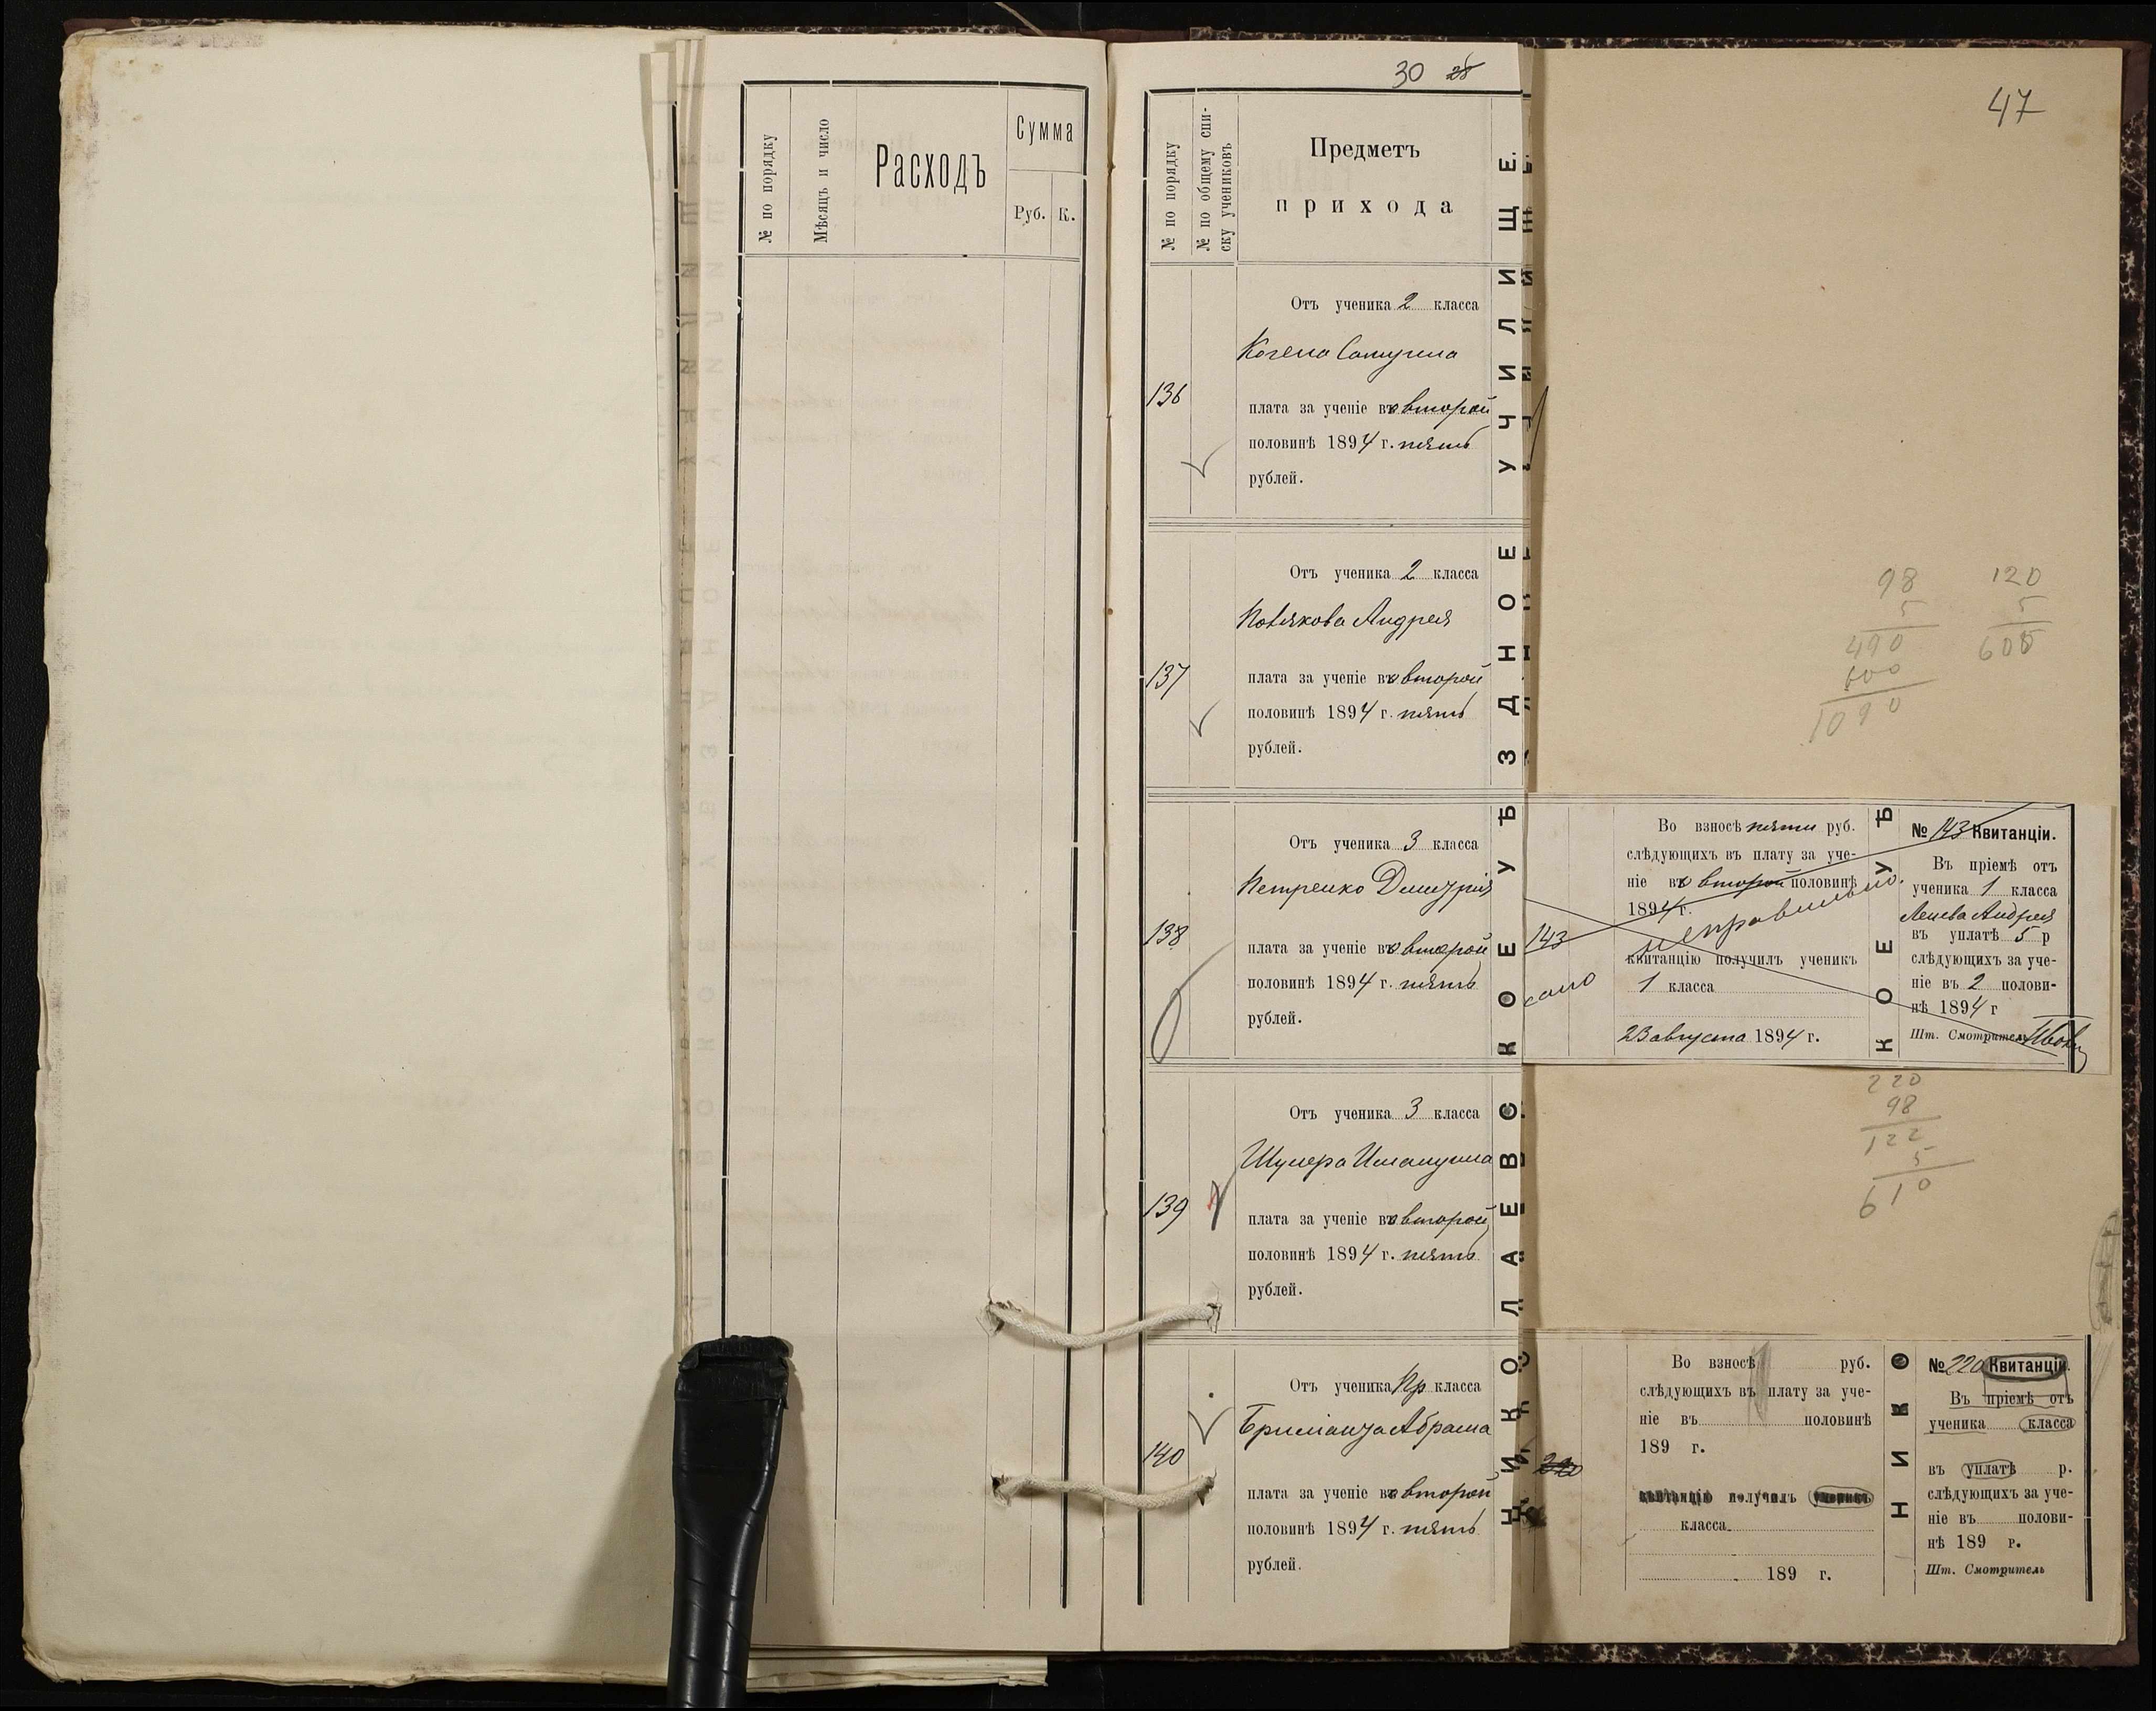 № по порядку
Мѣсяцъ и число
Расходъ
Сумма
Руб.
К.
30 28
№ по порядку
№ по общему спи-
ску учениковъ
Предметъ
прихода
Отъ ученика 2 класса
Когена Самуила
136
плата за ученіе во второй
половинѣ 1894 г. пять
рублей.
Отъ ученика 2 класса
Полякова Андрея
137
плата за ученіе во второй
половинѣ 1894 г. пять
рублей.
Отъ ученика 3 класса
Петренко Дмитрія
138
плата за ученіе во второй
половинѣ 1894 г. пять
рублей.
Отъ ученика 3 класса
139
плата за ученіе во второй
половинѣ 1894 г. пять
рублей.
Отъ ученика Пр класса
Абрама
140
плата за ученіе во второй
половинѣ 1894 г. пять
рублей.
НИКОЛАЕВСКОЕ УѢЗДНОЕ УЧИЛИЩЕ.
47
98
5
490
600
1090
120
5
600
143
Во взносѣ пяти руб.
слѣдующихъ въ плату за уче-
ніе во второй половинѣ
1894 г.
неправильно
квитанцію получилъ ученикъ
1 класса
23 августа 1894 г.
КОЕ УѢ
№ 143 Квитанціи.
Въ пріемѣ отъ
ученика 1 класса
Андрея
въ уплатѣ 5 р
слѣдующихъ за уче-
ніе въ 2 полови-
нѣ 1894 г
Шт. Смотритель
220
98
122
5
610
220
Во взносѣ руб.
слѣдующихъ въ плату за уче-
ніе въ половинѣ
189 г.
квитанцію получилъ ученикъ
класса
189 г.
НИКО
№ 220 Квитанціи.
Въ пріемѣ отъ
ученика класса
въ уплатѣ р.
слѣдующихъ за уче-
ніе въ полови-
нѣ 189 г.
Шт. Смотритель